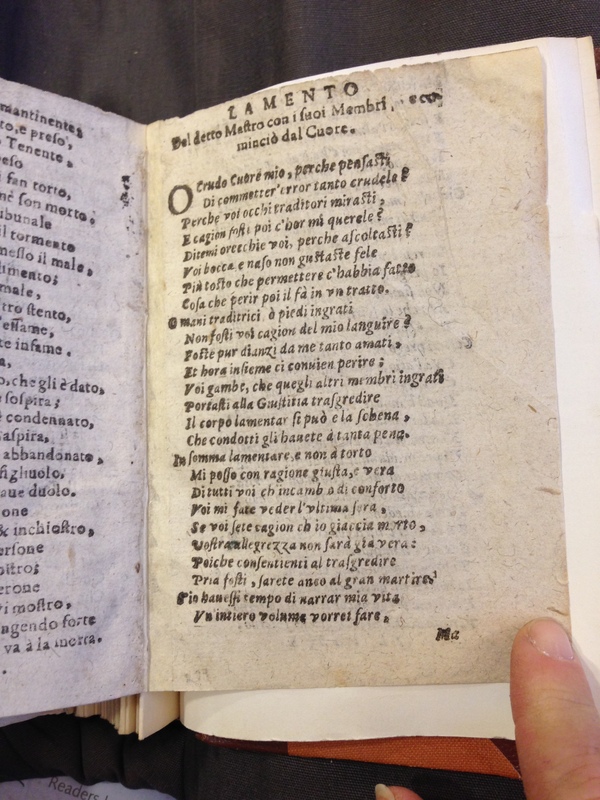 mantinente,
to, e preso,
Tenente,
eso
i fan torto,
nè son motto:
ibunale
il tormento
messo il male,
limento;
male,
tro stento,
l'essame,
te infame.
a,
o, che gli è dato,
e sospira;
è condennato,
aspira,
abbandonato,
figliuolo,
aue duolo.
one
& inchiostro,
ersone
ostro;
erone
vi mostro,
ngendo forte
va à la morte.
LAMENTO
Del detto Mastro con i suoi Membri, eco
minciò dal Cuore.
O Crudo Cuore mio, perche pensasti
Di commetter'error tanto crudele?
Perche voi occhi traditori mirasti,
E cagion fosti poi c'hor mi querele?
Ditemi orecchie voi, perche ascoltasti?
Voi bocca e naso non gustaste fele
Più tosto che permettere c'habbia fatto
Cosa che perir poi il fà in vn tratto.
O mani traditrici, ò piedi ingrati
Non fosti voi cagion del mio languire?
Foste pur dianzi da me tanto amati,
Et hora insieme ci conuien perire;
Voi gambe, che quegli altri membri ingrati
Portasti alla Giustitia trasgredire
Il corpo lamentar si può e la schena,
Che condotti gli hauete à tanta pena.
In somma lamentare, e non à torto
Mi posso con ragione giusta, e vera
Di tutti voi ch incambo di conforto
Voi mi fate veder l'vltima sera,
Se voi sete cagion ch io giaccia morto,
Vostra allegrezza non sarà già vera:
Poiche consentienti al trasgredire
Pria fosti, sarete anco al gran martire.
S io hauessi tempo di narrar mia vita
Vn'intiero volume vorrei fare,
Ma
Readers